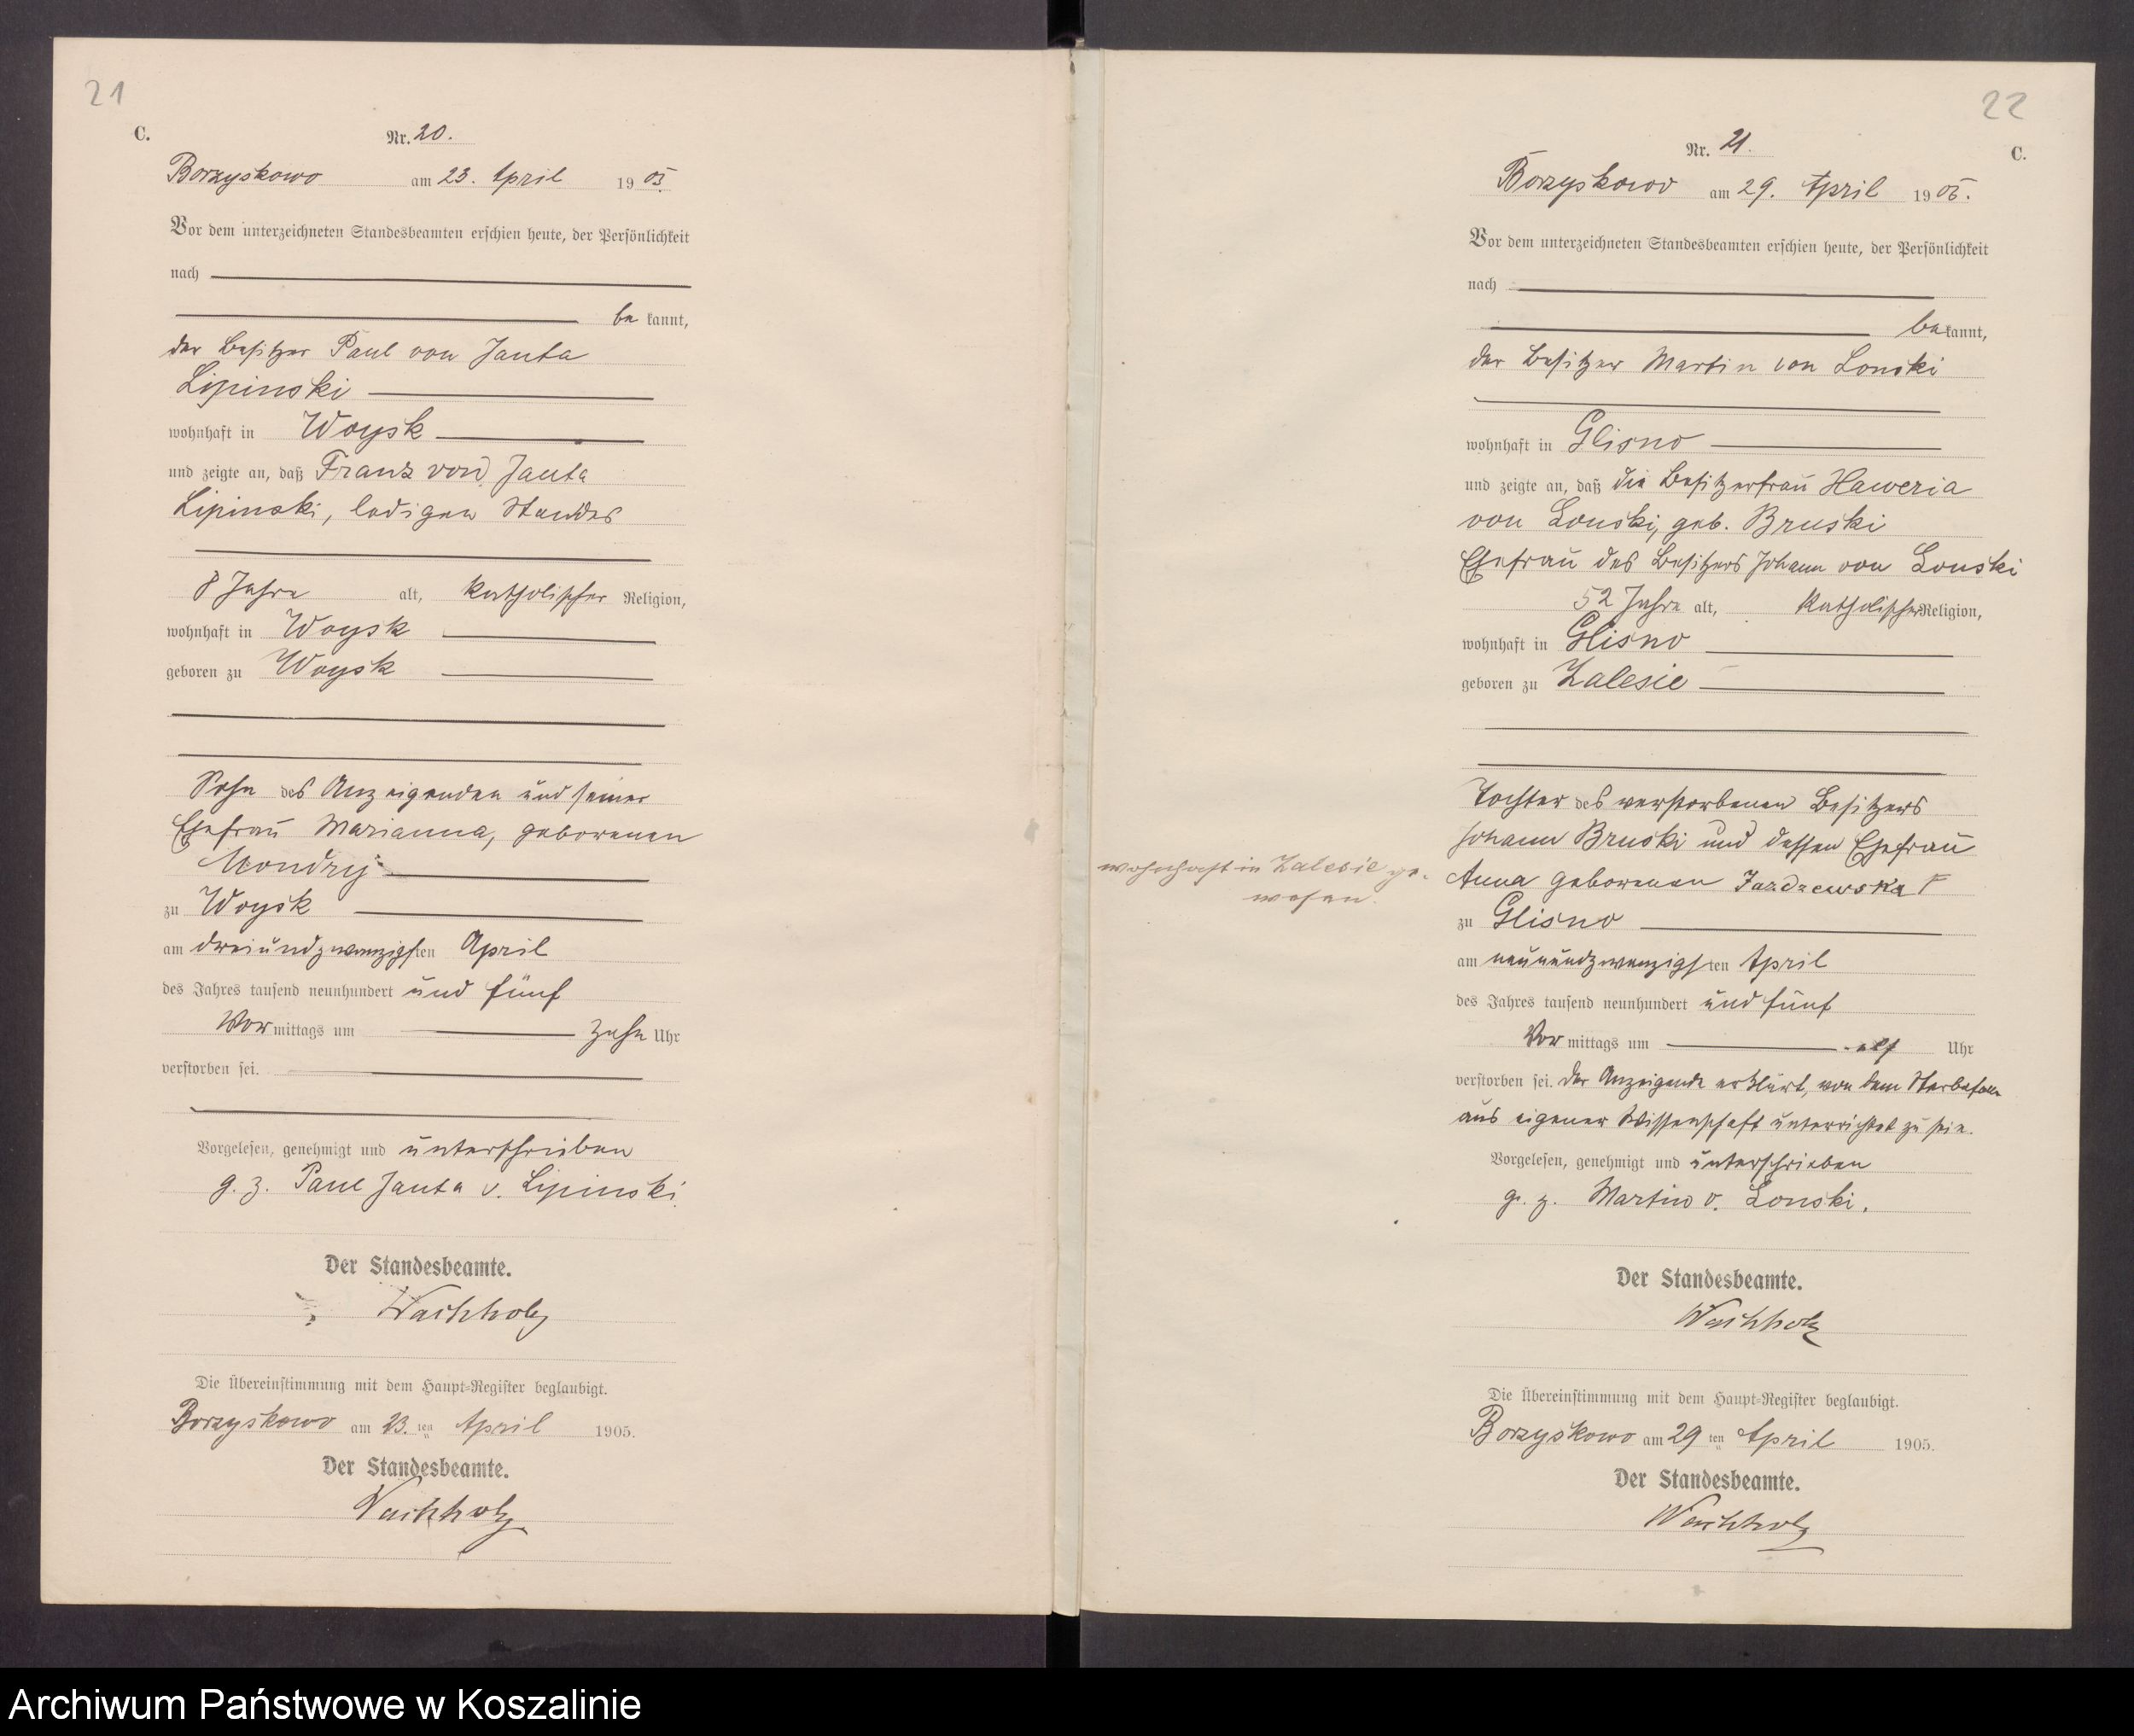 21
C.
Nr. 20.
Borzyskowo am 23. April 1905.
Vor dem unterzeichneten Standesbeamten erschien heute, der Persönlichkeit
nach
be kannt,
der Besitzer Paul von Janta
Lipinski
wohnhaft in Woysk
und zeigte an, daß Franz von Janta
Lipinski, ledigen Standes
8 Jahre alt, katholischer Religion,
wohnhaft in Woysk
geboren zu Woysk
Sohn des Anzeigenden und seiner
Ehefrau Marianna, geborenen
Mondry
zu Woysk
am dreiundzwanzigsten April
des Jahres tausend neunhundert und fünf
Vor mittags um zehn Uhr
verstorben sei.
Vorgelesen, genehmigt und unterschrieben
g. z. Paul Janta v. Lipinski.
Der Standesbeamte.
Wachholz
Die Übereinstimmung mit dem Haupt-Register beglaubigt.
Borzyskowo am 23. ten April 1905.
Der Standesbeamte.
Wachholz
22
C.
Nr. 21.
Borzyskowo am 29. April 1905.
Vor dem unterzeichneten Standesbeamten erschien heute, der Persönlichkeit
nach
be kannt,
der Besitzer Martin von Lonski
wohnhaft in Glisno
und zeigte an, daß die Besitzerfrau Haweria
von Lonski, geb. Bruski
Ehefrau des Besitzers Johann von Lonski
52 Jahre alt, katholischer Religion,
wohnhaft in Glisno
geboren zu Zalesie
Tochter des verstorbenen Besitzers
Johann Bruski und dessen Ehefrau
Anna geborenen Jazdzewska
wohnhaft in Zalesie ge-
wesen.
zu Glisno
am neunundzwanzigsten April
des Jahres tausend neunhundert und fünf
Vor mittags um elf Uhr
verstorben sei. Der Anzeigende erklärt, von dem Sterbefall
aus eigener Wissenschaft unterrichtet zu sein.
Vorgelesen, genehmigt und unterschrieben
g. z. Martin v. Lonski.
Der Standesbeamte.
Wachholz
Die Übereinstimmung mit dem Haupt-Register beglaubigt.
Borzyskowo am 29 ten April 1905.
Der Standesbeamte.
Wachholz
Archiwum Państwowe w Koszalinie